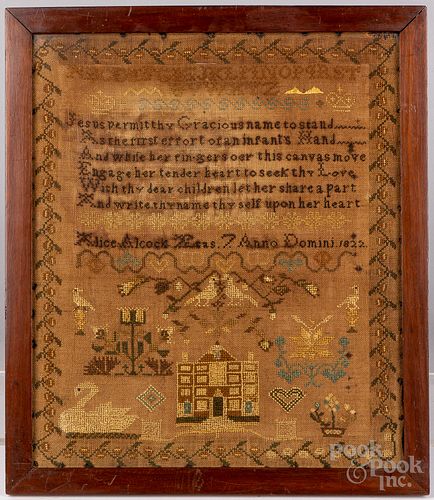 Jesus permit thy Gracious name to stand
As the first effort of an infants Hand
And while her fingers oer this canvas move
Engage her tender heart to seek thy Love
With thy dear children let her share a part
And write thy name thy self upon her heart
Alice Alcock Æ as. 7 Anno Domini. 1822.
Pook
& Pook
Inc.